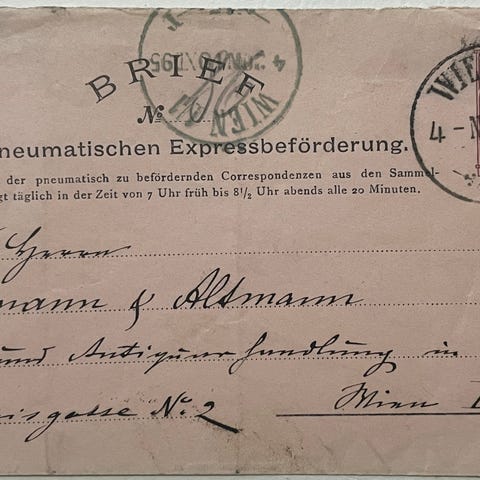 BRIEF
WIEN
№
4 - N
neumatischen Expressbeförderung.
der pneumatisch zu befördernden Correspondenzen aus den Sammel-
gt täglich in der Zeit von 7 Uhr früh bis 8½ Uhr abends alle 20 Minuten.
Herrn
mann & Altmann
und Antiquar handlung in
isgasse No. 2 Wien